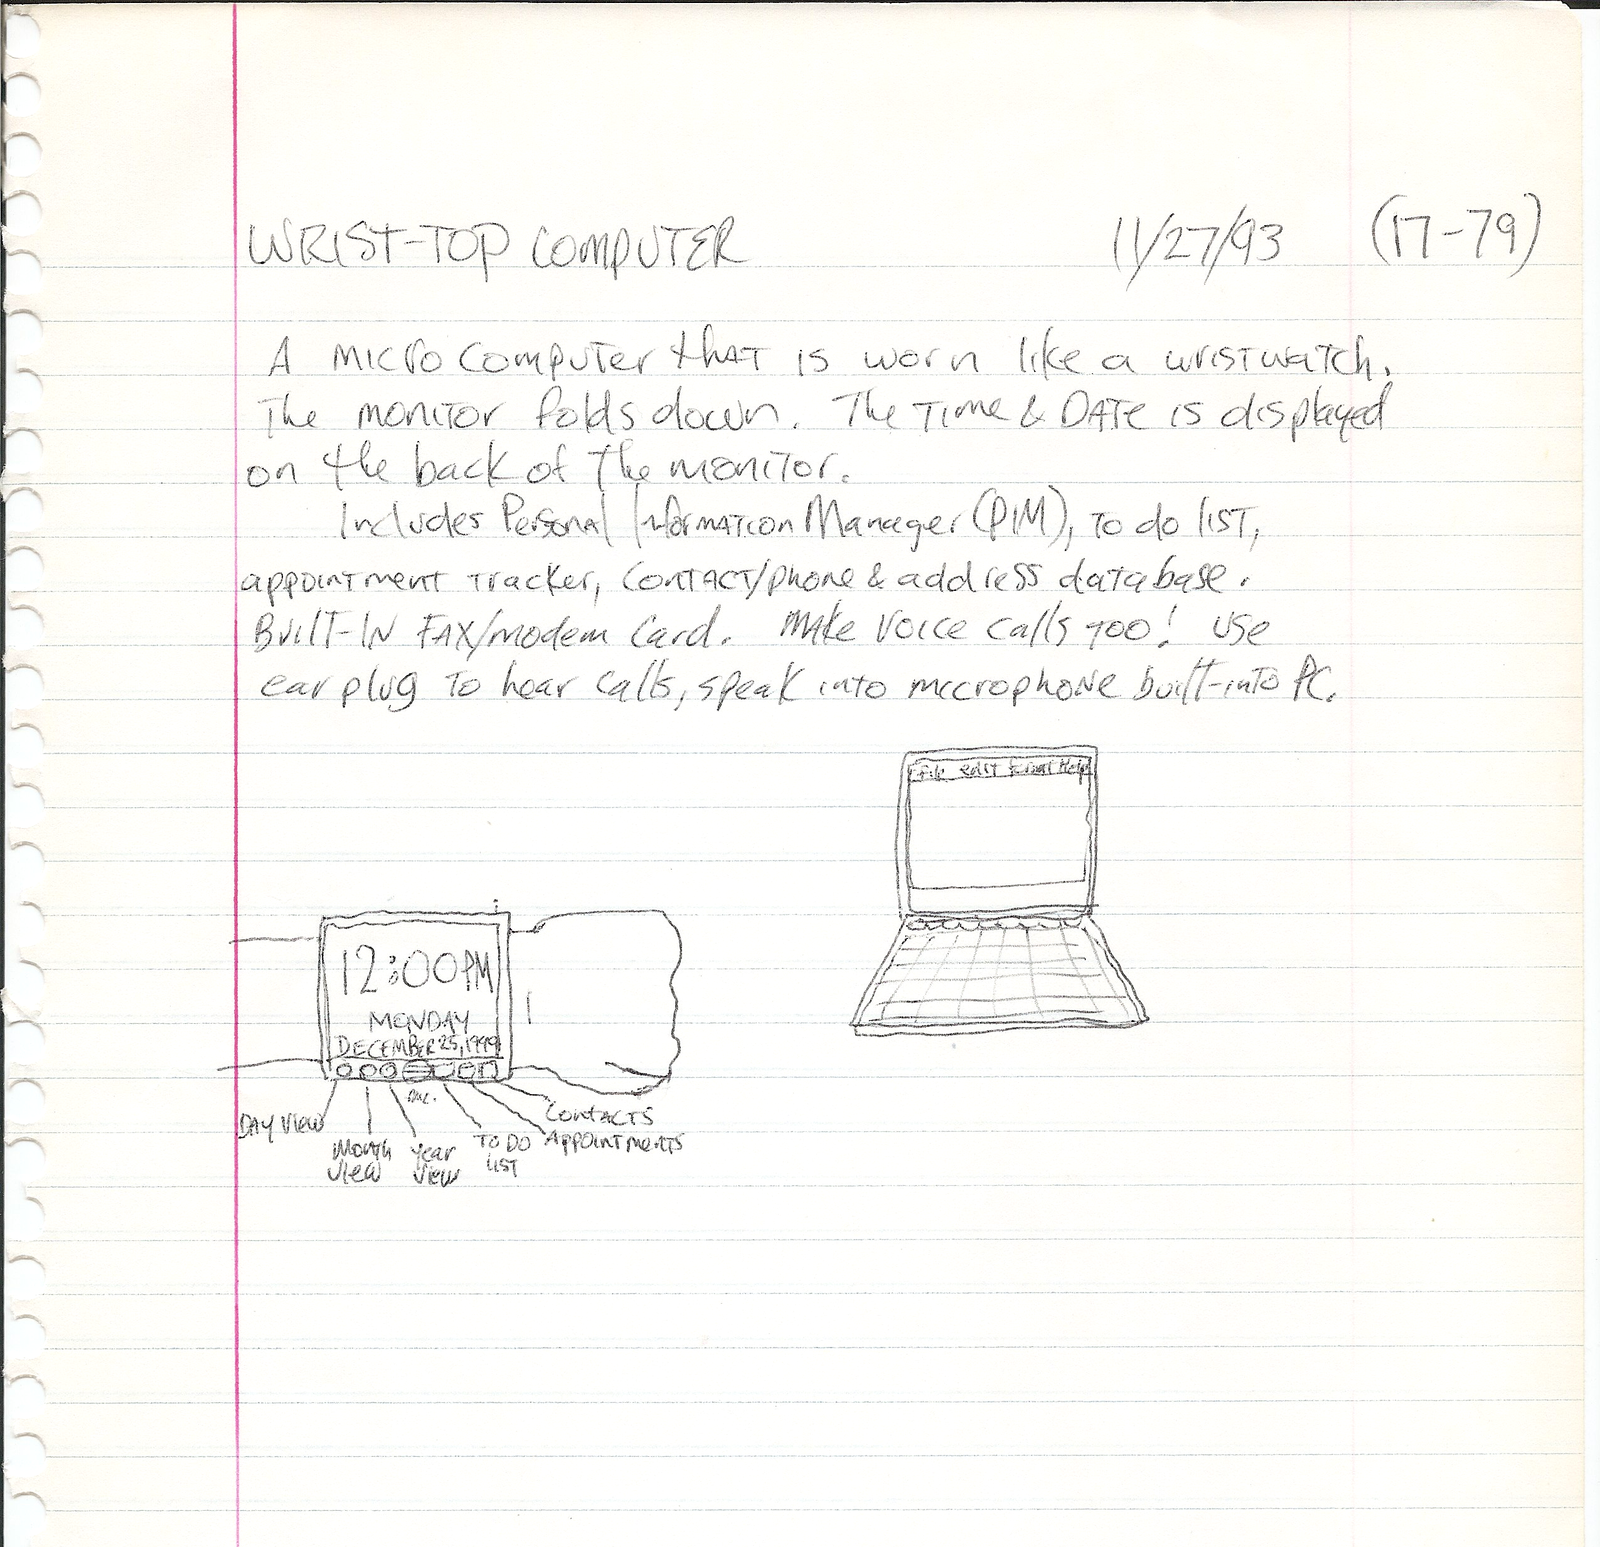 WRIST-TOP COMPUTER 11/27/93 (17-79)
A MICRO COMPUTER THAT IS WORN LIKE A WRISTWATCH.
THE MONITOR FOLDS DOWN. THE TIME & DATE IS DISPLAYED
ON THE BACK OF THE MONITOR.
INCLUDES PERSONAL INFORMATION MANAGER (PIM), TO DO LIST,
APPOINTMENT TRACKER, CONTACT/PHONE & ADDRESS DATABASE.
BUILT-IN FAX/MODEM CARD. MAKE VOICE CALLS TOO! USE
EAR PLUG TO HEAR CALLS, SPEAK INTO MICROPHONE BUILT-INTO PC.
File edit Help
12:00PM
MONDAY
DECEMBER 25, 1999
DAY VIEW
MONTH VIEW
YEAR VIEW
TO DO LIST
CONTACTS
APPOINTMENTS